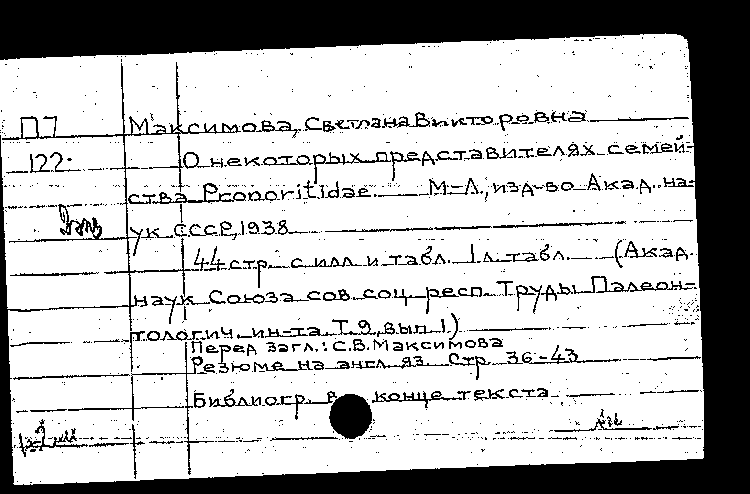 П7 Максимова, Светлана Викторовна
122. О некоторых представителях семей=
ства Pronoritidae. М-Л., изд-во Акад. на=
ук СССР, 1938
44 стр. с илл и табл. 1 л. табл. (Акад.
наук Союза сов. соц. респ. Труды Палеон=
тологич. ин-та. Т. 9, вып 1)
Перед загл.: С.В. Максимова
Резюме на англ. яз. Стр. 36-43
Библиогр. в конце текста